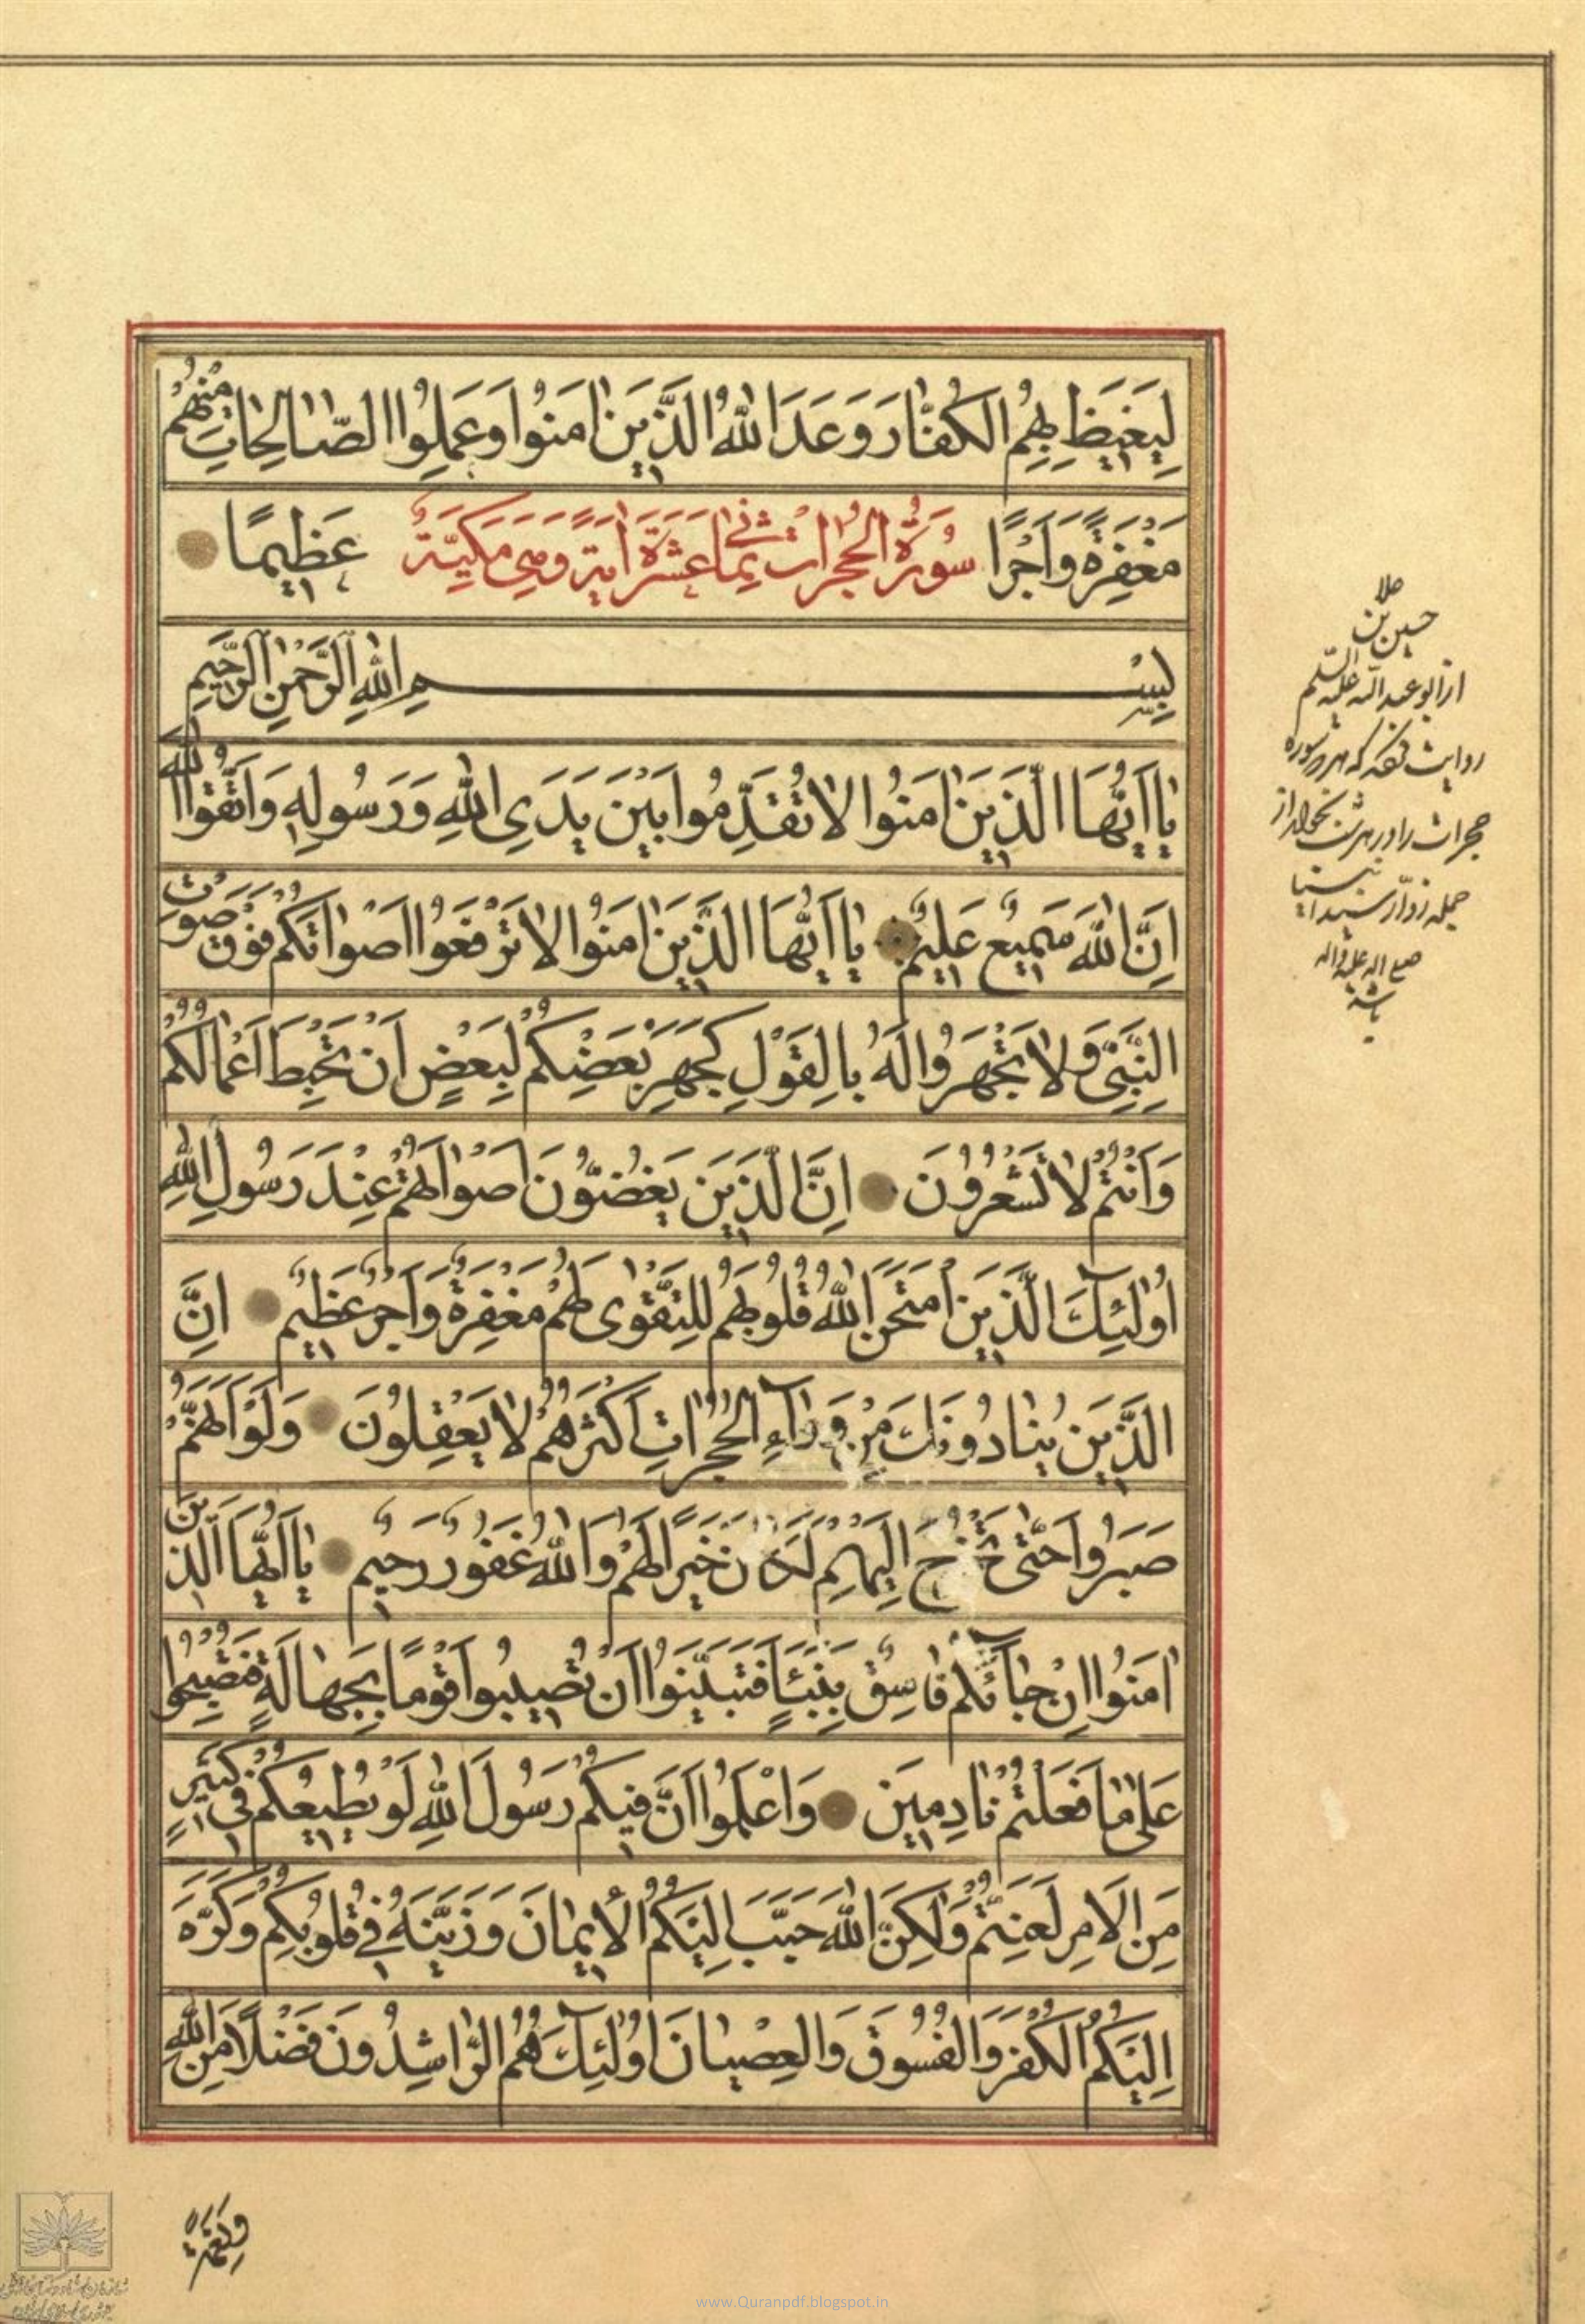 لِيَغيظَ بِهِمُ الكُفّارَ وَعَدَ اللهُ الَّذينَ امَنُوا وَعَمِلُوا الصّالِحاتِ مِنْهُمْ
مَغْفِرَةً وَاَجْرًا سُورَةُ الحُجُراتِ ثمانى عَشَرَةَ ايَةً وَهِىَ مَكِيَّةٌ عَظيمًا
بِسْمِ اللهِ الرَّحْمنِ الرَّحيمِ
يا اَيُّهَا الَّذينَ امَنُوا لا تُقَدِّمُوا بَيْنَ يَدَىِ اللهِ وَرَسُولِهِ وَاتَّقُوا اللهَ
اِنَّ اللهَ سَميعٌ عَليمٌ يا اَيُّهَا الَّذينَ امَنُوا لا تَرْفَعُوا اَصْواتَكُمْ فَوْقَ صَوْتِ
النَّبِىِّ وَلا تَجْهَرُوا لَهُ بِالقَوْلِ كَجَهْرِ بَعْضِكُمْ لِبَعْضٍ اَنْ تَحْبَطَ اَعْمالُكُمْ
وَاَنْتُمْ لا تَشْعُرُونَ اِنَّ الَّذينَ يَغُضُّونَ اَصْواتَهُمْ عِنْدَ رَسُولِ اللهِ
اُولئِكَ الَّذينَ امْتَحَنَ اللهُ قُلُوبَهُمْ لِلتَّقْوى لَهُمْ مَغْفِرَةٌ وَاَجْرٌ عَظيمٌ اِنَّ
الَّذينَ يُنادُونَكَ مِنْ وَرآءِ الحُجُراتِ اَكْثَرُهُمْ لا يَعْقِلُونَ وَلَوْ اَنَّهُمْ
صَبَرُوا حَتّى تَخْرُجَ اِلَيْهِمْ لَكانَ خَيْرًا لَهُمْ وَاللهُ غَفُورٌ رَحيمٌ يا اَيُّهَا الَّذينَ
امَنُوا اِنْ جآئَكُمْ فاسِقٌ بِنَبَئٍا فَتَبَيَّنُوا اَنْ تُصيبُوا قَوْمًا بِجَهالَةٍ فَتُصْبِحُوا
عَلى ما فَعَلْتُمْ نادِمينَ وَاعْلَمُوا اَنَّ فيكُمْ رَسُولَ اللهِ لَوْ يُطيعُكُمْ فى كَثيرٍ
مِنَ الاَمْرِ لَعَنِتُّمْ وَلكِنَّ اللهَ حَبَّبَ اِلَيْكُمُ الاْيمانَ وَزَيَّنَهُ فى قُلُوبِكُمْ وَكَرَّهَ
اِلَيْكُمُ الكُفْرَ وَالفُسُوقَ وَالعِصْيانَ اُولئِكَ هُمُ الرّاشِدُونَ فَضْلًا مِنَ اللهِ
حسين بن
از ابو عبد الله عليه السلم
روايت كه هر سوره
حجرات را در هر شب بخواند از
جمله زوار سيد انبيا
صلى الله عليه واله
باشد
وَنِعْمَةً
www.Quranpdf.blogspot.in